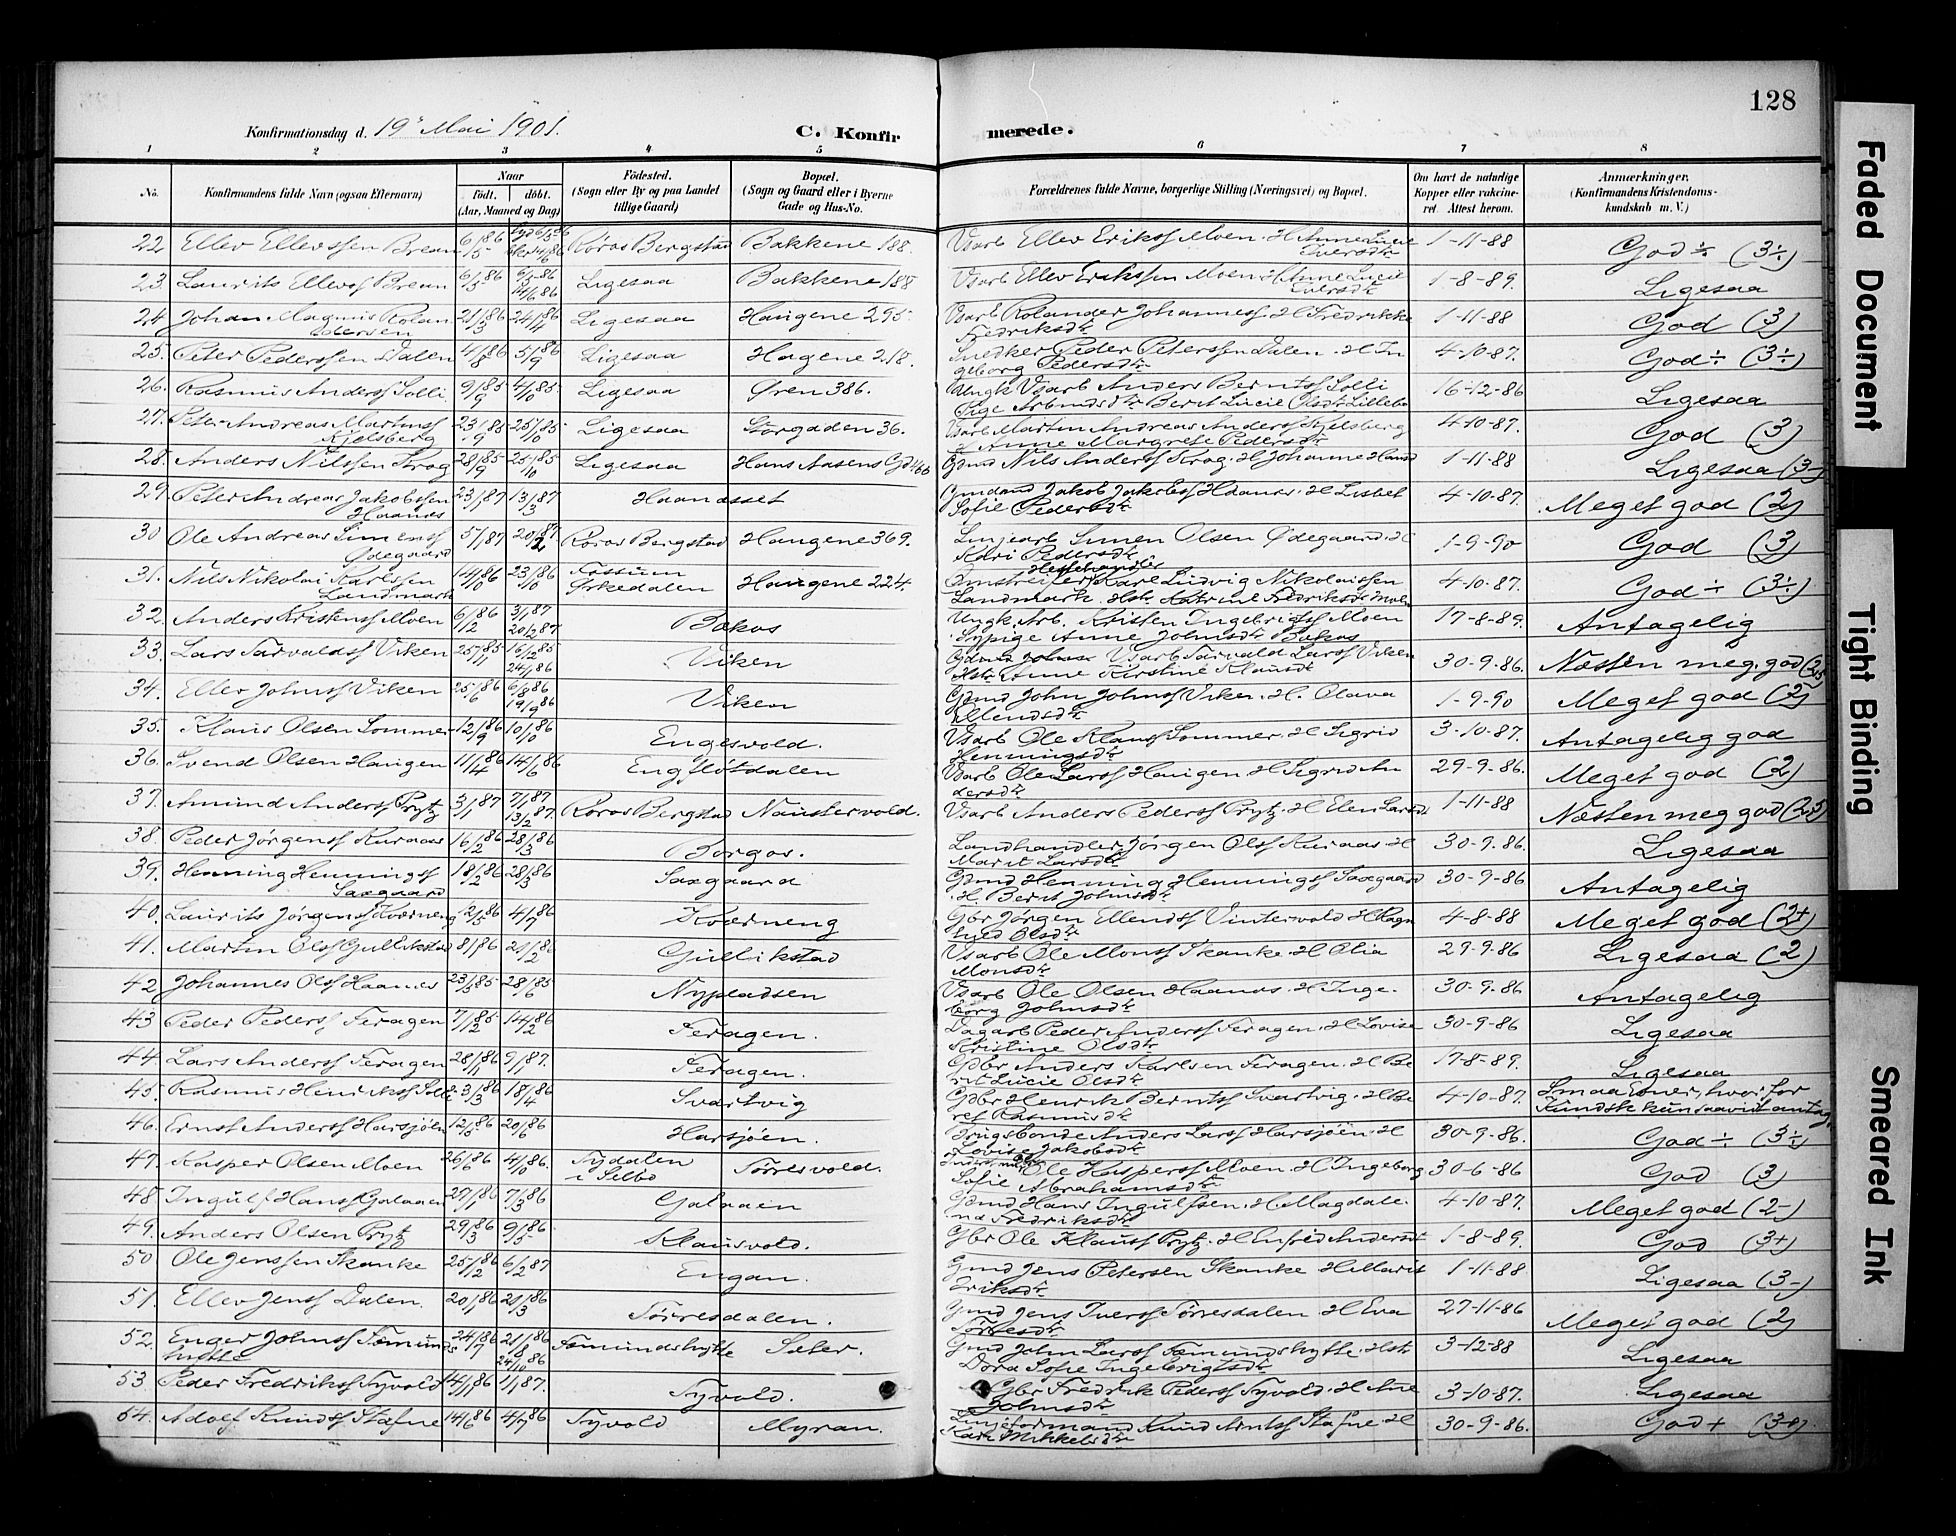 128
Konfirmationsdag d. 19 Mai 1901.
C. Konfirmerede.
1 2 3 4 5 6 7 8
No.
Konfirmandens fulde Navn (ogsaa Efternavn)
Naar
født. døbt.
(Aar, Maaned og Dag)
Fødested.
(Sogn eller By og paa Landet
tillige Gaard)
Bopæl.
(Sogn og Gaard eller i Byerne
Gade og Hus-No.
Forældrenes fulde Navne, borgerlige Stilling (Næringsvei) og Bopæl.
Om havt de naturlige
Kopper eller vakcine-
ret. Attest herom.
Anmærkninger.
(Konfirmandens Kristendoms-
kundskab m. V.)
22 Ellev Ellevssen Brean 6/5 86 Røros Bergstad Bakkene 188. Ellev Erikss Moen. H. Anne Lucie Iversdtr 1-11-88 God ÷ (3÷)
23. Laurits Ellevss Brean 6/5 86 14/6 86 Ligesaa Bakkene 188 Ellev Erikssen Moen H. Anne Lucie Iversdtr 1-8-89. Ligesaa
24 Johan Magnus Rolandersen 21/3 86 24/4 86 Ligesaa Haugene 295 Rolander Johanness H. Fredrikke Fredriksdtr 1-11-88 God (3)
25. Peter Pederssen Dalen 4/8 86 5/9 86 Ligesaa Hagene 218. Snedker Peder Peterssen Dalen. H. Ingeborg Pedersdtr 4-10-87. God ÷ (3÷)
26. Rasmus Anderss Solli 9/9 85 4/10 85 Ligesaa Øren 386. Ungk. Anders Berntss Solli Pige Berit Lucie Olsdtr Lillebo 16-12-86 Ligesaa
27. Peter Andreas Martinss Kjelsberg 23/9 85 25/10 85 Ligesaa Storgaden 36. Martin Andreas Anderss Kjelsberg H. Anne Margrete Pedersdtr 4-10-87. God (3)
28. Anders Nilssen Krog 28/9 85 25/10 85 Ligesaa Hans Aasens Gd Nils Anderss Krog. H. Johanne Hansd 1-11-88 Ligesaa (3-)
29 Peter Andreas Jakobssen Haanes 23/1 87 13/3 87 Haanæsset Jakob Jakobss Haanes. H. Lisbet Sofie Pedersdtr 4-10-87. Meget god (2)
30 Ole Andreas Simenss Ødegaard 5/1 87 20/2 87 Røros Bergstad Haugene 369. Simen Olsen Ødegaard. H. Kari Pedersdtr 1-9-90 God (3)
31. Nils Nikolai Karlssen Landmark 14/10 86 23/10 86 Ørkedalen Haugene 224. Omstreifer Hestehandler Karl Ludvig Nikolaissen Landmark. Hstr. Katrine Fredriksdtr Moen 4-10-87. God ÷ (3÷)
32. Anders Kristenss Moen 3/1 87 20/2 87 Bakos Ungk. Arb. Kristen Ingebrigtss Moen Pige Anne Johnsdtr Bakos 17-8-89. Antagelig
33. Lars Tarvaldss Viken 16/12 85 24/1 86 Viken Tarvald Larss Viken Hstr. Anne Kirstine Klausdtr 30-9-86. Næsten meg. god (2,5
34. Ellev Johnss Viken 25/6 86 6/8 86 19/9 86 Viken Gdmd John Johnss Viken. H. Olava Ellendsdtr 1-9-90 Meget god (2)
35. Klaus Olsen Sommer 12/9 86 10/10 86 Engesvold. Ole Klauss Sommer. H. Sigrid Henningsdtr 3-10-87. Antagelig god
36. Svend Olsen Haugen 11/4 86 14/6 86 Engfløtdalen Ole Larss Haugen H. Sigrid Andersdtr 29-9-86. Meget god (2)
37. Amund Anderss Prytz 3/1 87 7/1 87 13/2 87. Røros Bergstad Naustervold. Anders Pederss Prytz. H. Elen Larsd 1-11-88 Næsten meg god (2,5)
38. Peder Jørgenss Kuraas 16/2 86 28/3 86 Borgos. Landhandler Jørgen Olss Kuraas H. Marit Larsdtr 30-9-86. Ligesaa
39. Henning Henningss Saxgaard 18/2 86 28/3 86 Saxgaard Gdmd Henning Henningss Saxgaard H. Berit Johnsdtr 30-9-86 Antagelig
40. Laurits Jørgenss Kværneng 12/5 86 4/7 86 Kværneng Gbr Jørgen Ellendss Vintervold H. Ragnhild Olsdtr 4-8-88 Meget god (2+)
41. Martin Olss Gullikstad 21/2 86 Gullikstad Ole Monss Skanke. H. Olia Monsdtr 29-9-86 Ligesaa (2)
42 Johannes Olss Haanes 23/5 85 28/6 85 Nypladsen Ole Olsen Haanes. H. Ingeborg Johnsdtr 30-9-86 Antagelig
43 Peder Pederss Feragen 7/12 85 14/2 86 Feragen. Dagarb Peder Anderss Feragen. H. Lovise Kristine Olsdtr 30-9-86 Ligesaa
44. Lars Anderss Feragen 28/1 86 9/1 87. Feragen. Gbr Anders Karlsen Feragen. H. Berit Lucie Olsdtr 17-8-89. Ligesaa
45. Rasmus Henrikss 23/3 86 18/4 86 Svartvig Gbr Henrik Berntss Svartvig. H. Beret Rasmusdtr 4-10-87. Smaa Evner, hvorfor Kundsk. kun saavidt antag.
46. Ernst Anderss Harsjøen 12/5 86 20/6 86 Harsjøen. Anders Larss Harsjøen. H. Lovise Jakobsdtr 30-9-86. God ÷ (3÷)
47. Kasper Olsen Moen 26/6 86 4/10 86. Tydalen i Selbo Tørresvold. Ole Kasperss Moen. H. Ingeborg Sofie Abrahamsdtr 30-6-86 God (3)
48. Ingulf Hanss Galaaen 27/1 86 7/3 86 Galaaen Gdmd Hans Ingulfsen. H. Magdalena Fredriksdtr 4-10-87. Meget god (2-)
49. Anders Olsen Prytz 29/3 86 9/5 86 Klausvold. Gbr Ole Klauss Prytz. H. Enfrid Andersdt 1-8-89. God (3+)
50 Ole Jenssen Skanke 25/12 86 6/2 87 Engan. Gmd Jens Petersen Skanke H. Marit Eriksdtr 1-11-88. Ligesaa (3-)
51. Ellev Jenss Dalen. 20/1 86 21/3 86 Tørresdalen. Gmd Jens Iverss Tørresdalen. H. Eva Tørresdtr 27-11-86 Meget god (2)
52. Enger Johnss Fæmundshytte 24/7 86 21/8 86 24/10 86 Fæmundshytte Sæter. Gmd John Larss Fæmundshytte. Hstr. Dora Sofie Ingebrigtsdtr 3-12-88 Ligesaa
53. Peder Fredrikss Tyvold 1/1 87. Tyvold. Gbr Fredrik Pederss Tyvold. H. Ane Johnsdtr 3-10-87. Ligesaa
54. Adolf Knudss Stafne 14/6 86 4/7 86 Tyvold Myran. Knud Arntss Stafne H. Kari Mikkelsdtr 30-9-86. God + (3+).
Faded Document
Tight Binding
Smeared Ink